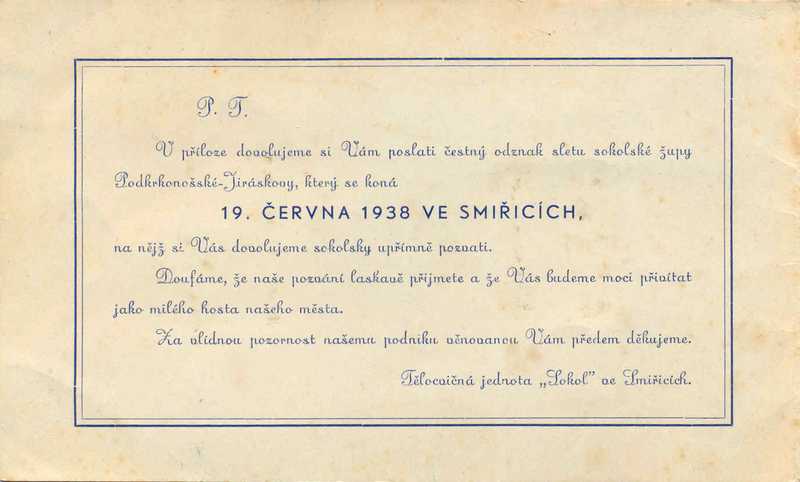 P. T.
V příloze dovolujeme si Vám poslati čestný odznak sletu sokolské župy
Podkrkonošské-Jiráskovy, který se koná
19. ČERVNA 1938 VE SMIŘICÍCH,
na nějž si Vás dovolujeme sokolsky upřímně pozvati.
Doufáme, že naše pozvání laskavě přijmete a že Vás budeme moci přivítat
jako milého hosta našeho města.
Za vlídnou pozornost našemu podniku věnovanou Vám předem děkujeme.
Tělocvičná jednota „Sokol" ve Smiřicích.